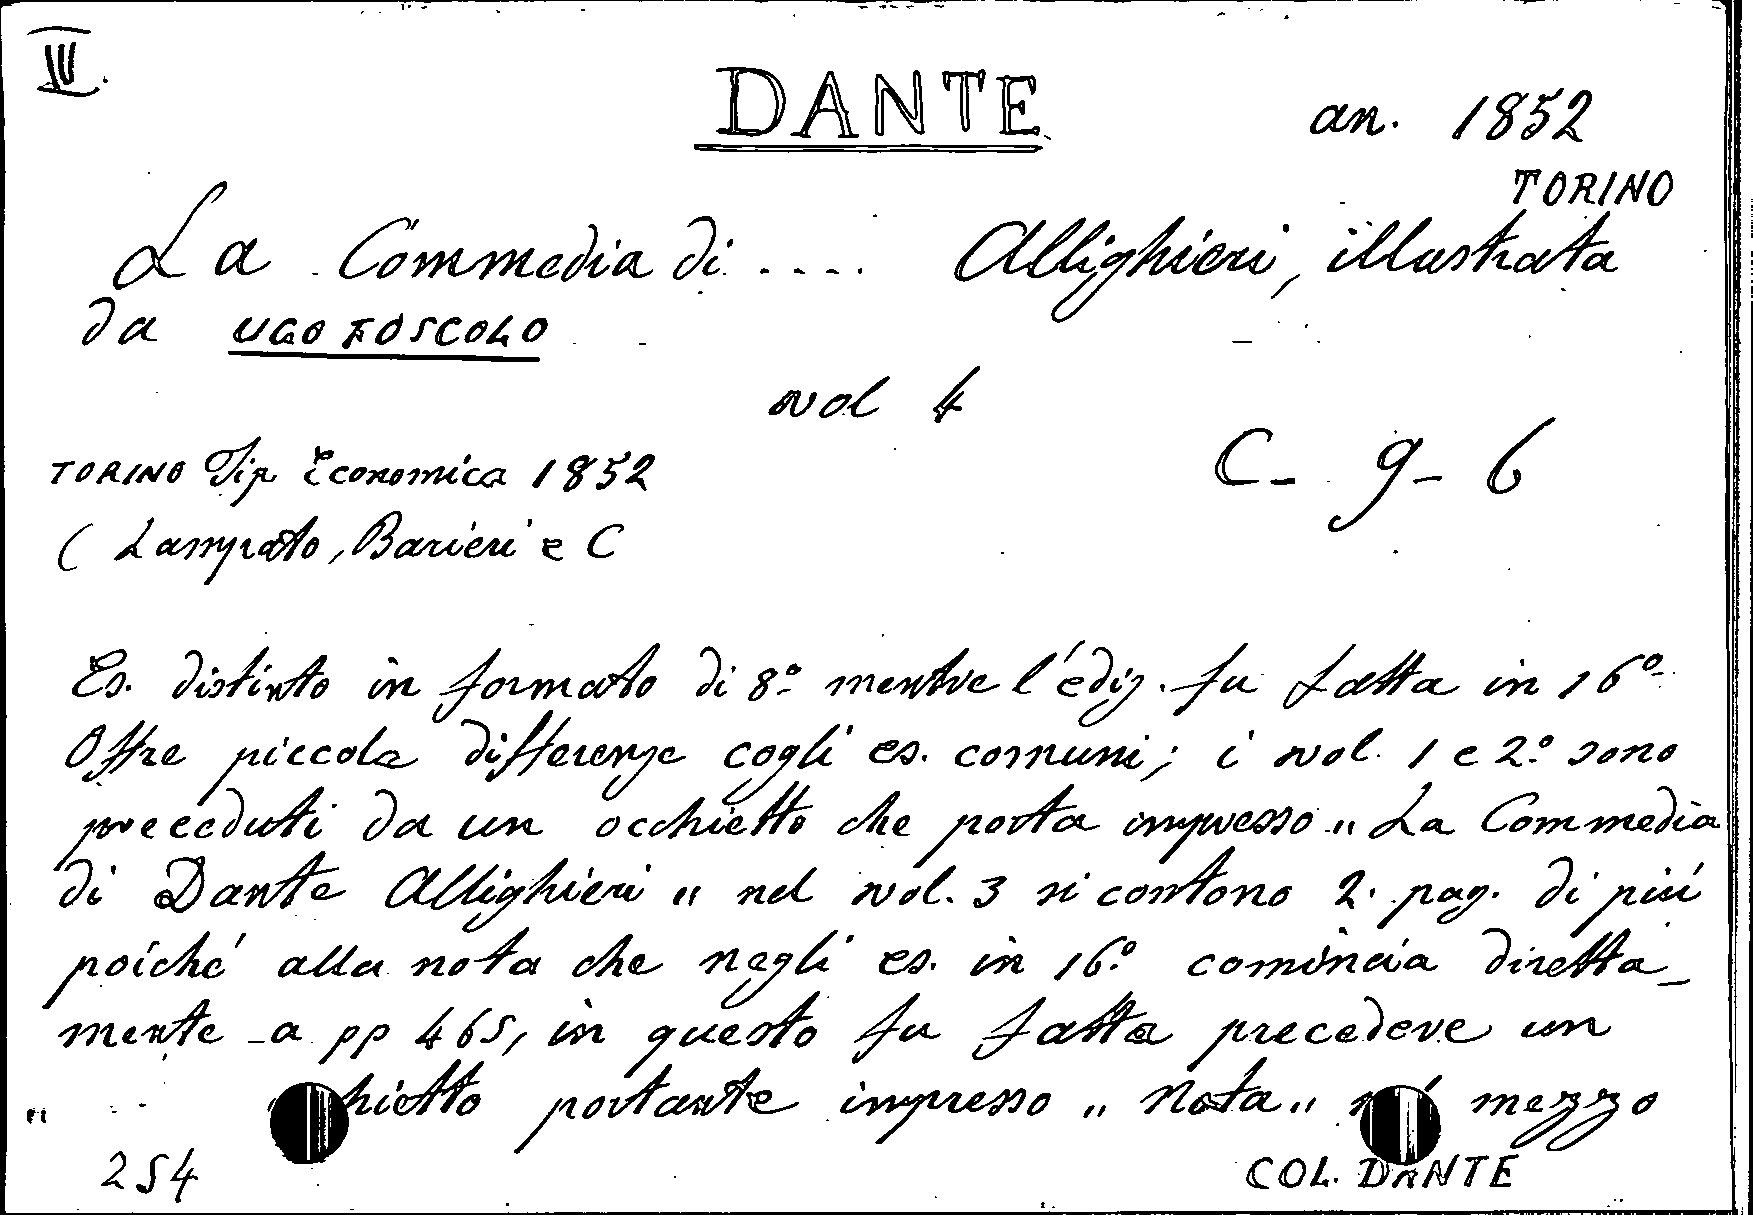 III.
DANTE
an. 1852
TORINO
La Commedia di .... Allighieri, illustrata
da UGO FOSCOLO
vol 4
C - 9 - 6
TORINO Tip Economica 1852
( Lampato, Barieri e C
Es. distinto in formato di 8º mentre l'ediz. fu fatta in 16º
Offre piccole differenze cogli es. comuni; i vol. 1 e 2º sono
preceduti da un occhietto che porta impresso „ La Commedia
di Dante Allighieri „ nel vol. 3 si contono 2. pag. di piú
poiché alla nota che negli es. in 16º comincia diretta-
mente a pp 465, in questo fu fatta precedere un
hietto portante impresso „ Nota „ mezzo
254
COL. DANTE